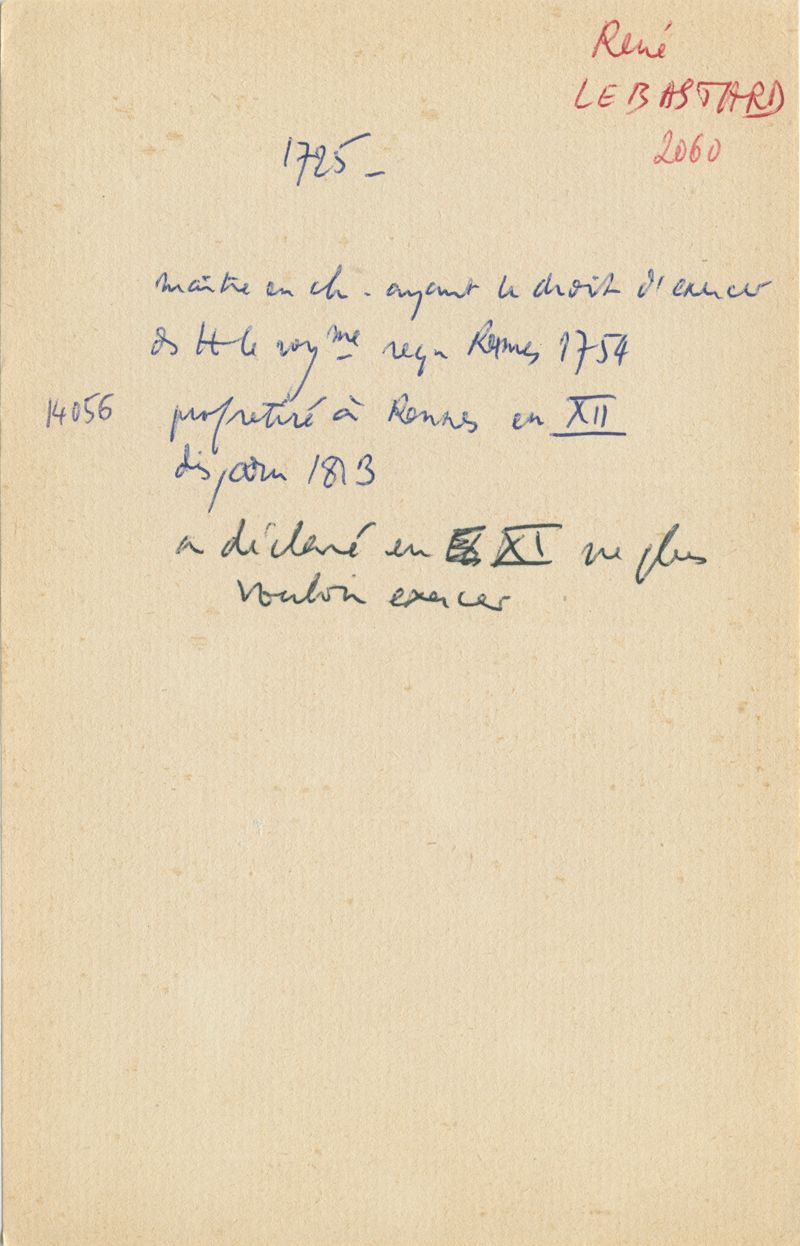 René
LEBASTARD
2060
1725 -
maître en ch. ayant le droit d'exercer
ds tt le roy me reçu Rennes 1754
14056 prof retiré à Rennes en XII
disparu 1813
a déclaré en XI ne plus
vouloir exercer